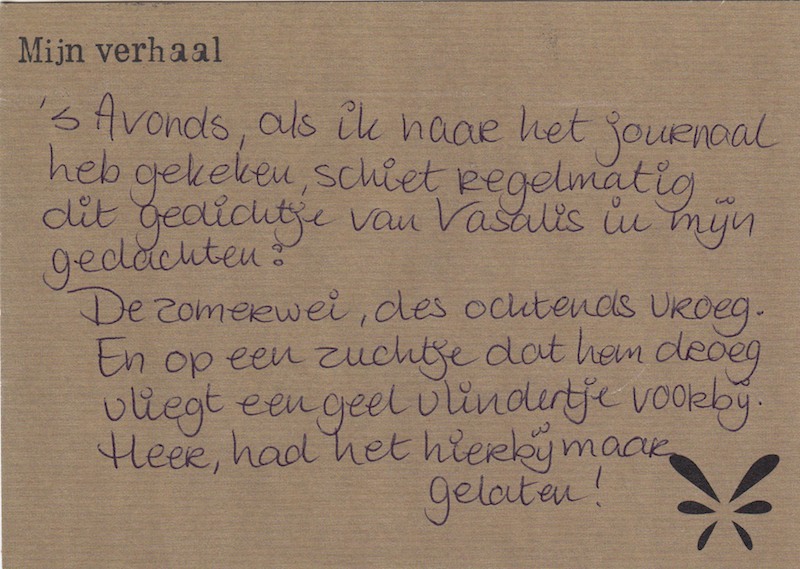 Mijn verhaal
's Avonds, als ik naar het journaal
heb gekeken, schiet regelmatig
dit gedichtje van Vasalis in mijn
gedachten:
De zomerwei, des ochtends vroeg.
En op een zuchtje dat hem droeg
vliegt een geel vlindertje voorbij.
Heer, had het hierbij maar
gelaten!